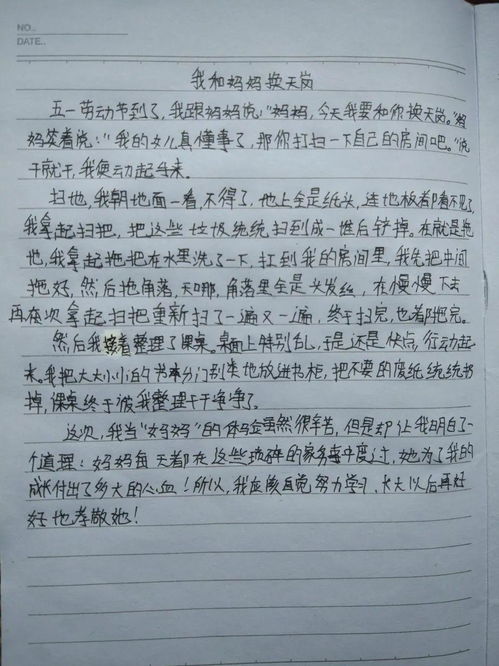 NO..
DATE..
我和妈妈换天岗
五一劳动节到了,我跟妈妈说:"妈妈,今天我要和你换天岗。"妈
妈笑着说:"我的女儿真懂事了,那你打扫一下自己的房间吧。"说
干就干,我便动起手来。
扫地,我朝地面一看,不得了,地上全是纸头,连地板都看不见了
我拿起扫把,把这些垃圾统统扫到成一堆后铲掉。在就是拖
地,我拿起拖把在水里洗了一下,扛到我的房间里,我先把中间
拖好,然后拖角落,天哪,角落里全是头发丝,在慢慢下去
再次拿起扫把重新扫了一遍又一遍,终于扫完,也都把完。
然后我接着整理了课桌。桌面上特别乱,于是还是快点,行动起
来。我把大大小小的书本分门别类地放进书柜,把不要的废纸统统
掉,课桌终于被我整理干干净净了。
这次,我当"妈妈"的体验虽然很辛苦,但是却让我明白了一
个道理:妈妈每天都在这些琐碎的家务事中度过,她为了我的
成长付出了多大的心血!所以,我应该自觉努力学习,长大以后再好
好地孝敬她!